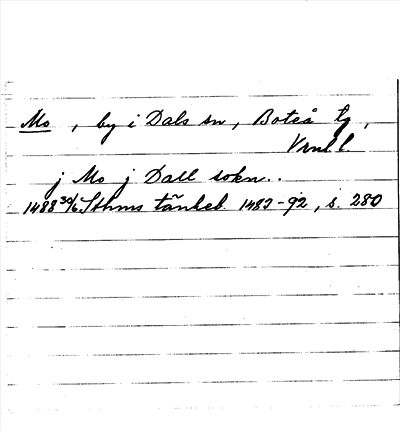 Mo, by i Dals sn, Boteå tg,
Vrnl l.
j Mo j Dall sokn..
1488 30/6 Sthms tänkeb. 1483-92, s. 280